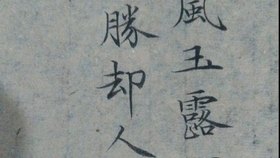 風玉露
勝却人